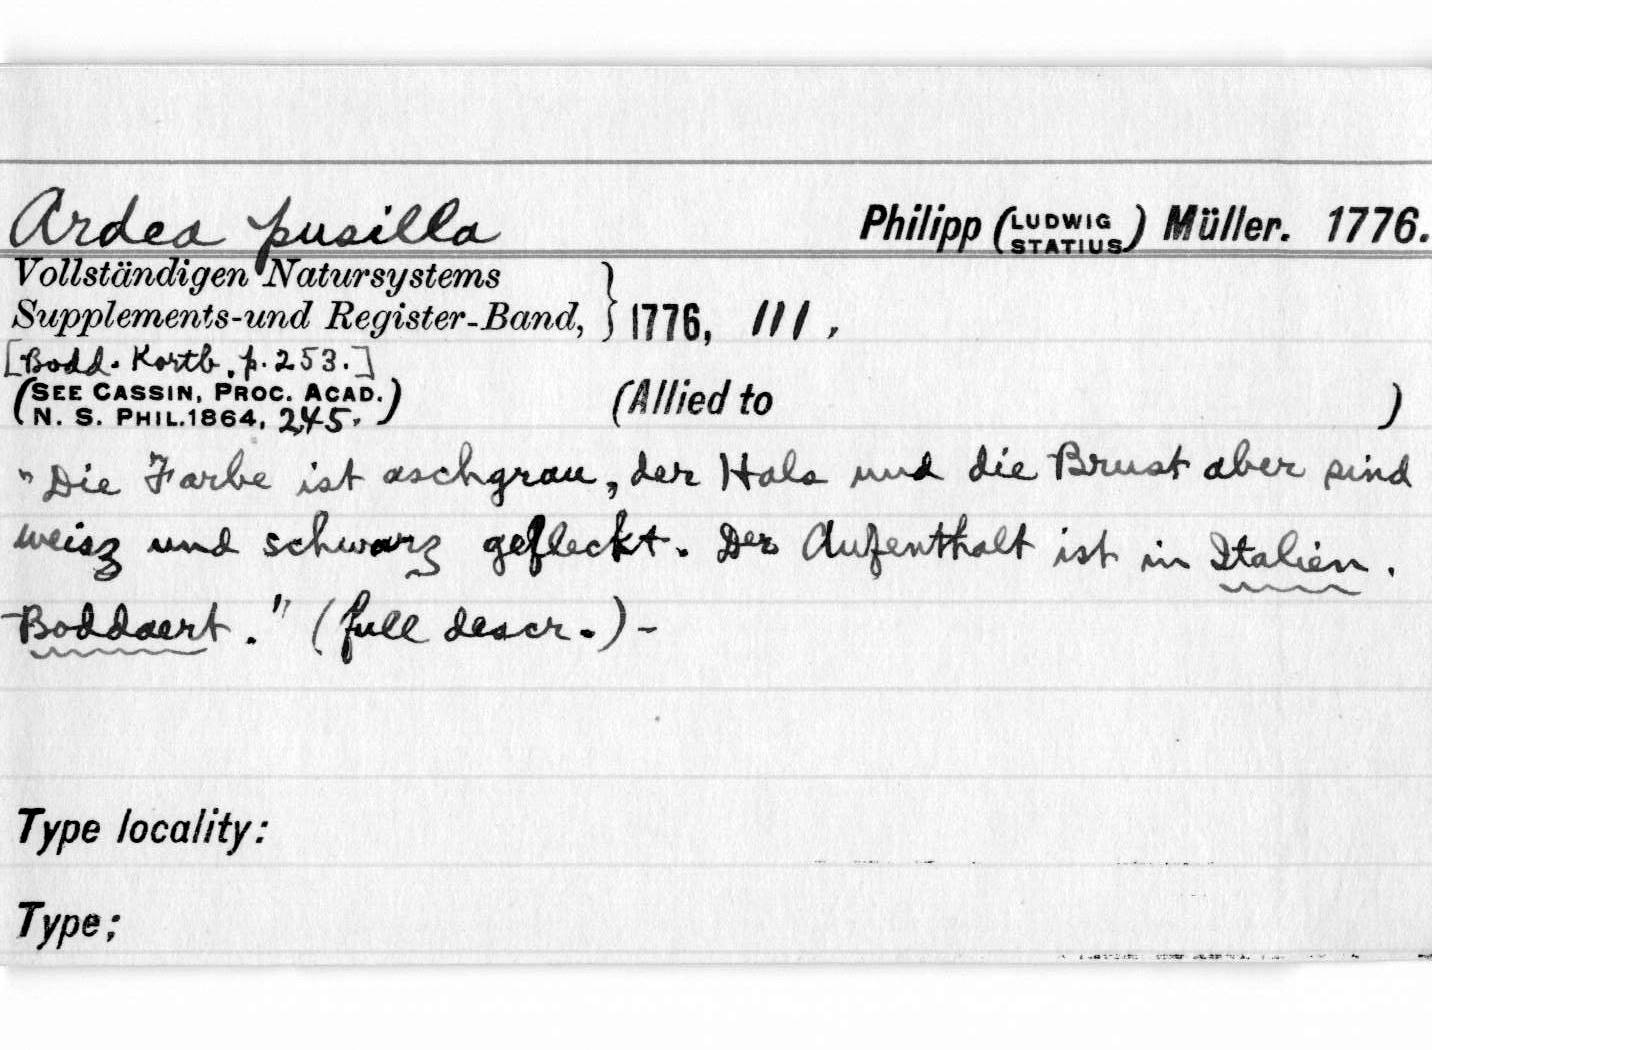 Ardea pusilla Philipp (LUDWIG STATIUS) Müller. 1776.
Vollständigen Natursystems
Supplements-und Register-Band, } 1776, 111,
[Bodd. Kortb. p. 253.]
(SEE CASSIN, PROC. ACAD.
N. S. PHIL. 1864, 245.) (Allied to )
"Die Farbe ist aschgrau, der Hals und die Brust aber sind
weisz und schwarz gefleckt. Der Aufenthalt ist in Italien.
Boddaert." (full descr.) -
Type locality:
Type;